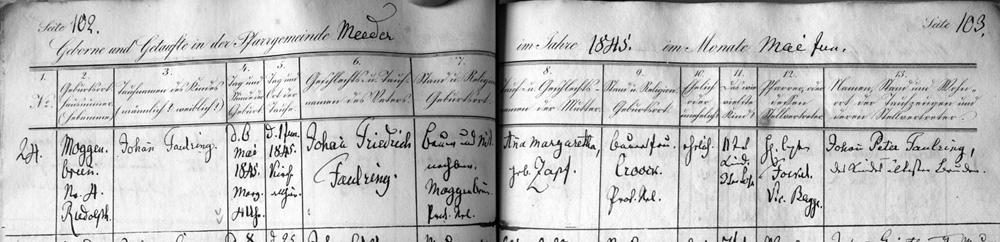 Seite 102.
Seite 103.
Geborne und Getaufte in der Pfarrgemeinde Meeder
im Jahre 1845. im Monate Mai Jun.
1.
No.
2.
Geburtsort
Hausnummer
3.
Taufnamen des Kindes
(männlich? weiblich?)
4.
Tag und
Stunde der
Geburt
5.
Tag und
Ort der
Taufe.
6.
Geschlechts- u. Tauf-
namen des Vaters.
7.
Stand u. Religion
Geburtsort.
8.
Tauf- u. Geschlechts-
namen der Mutter
9.
Stand u. Religion
Geburtsort.
10.
Ehelich
oder
unehelich
11.
Das wie
vielste
Kind?
12.
Pfarrer, oder
dessen
Stellvertreter
13.
Namen, Stand und Wohn-
ort der Taufzeugen und
deren Stellvertreter.
24.
Moggen
brun.
Nr. 4
Rudolph.
Johañ Faulring.
d. 6
Mai
1845.
Morg.
4 Uhr.
d. 1 Jun.
1845.
Kirch
Johañ Friedrich
Faulring.
Bauer und
nachbar
Moggenbrun
Prot. Rel.
Aña Margaretha,
geb. Zapf.
Bauersfrau.
Crock.
Prot. Rel.
ehelich.
Kind.
Vic. Bagge.
Johañ Peter Faulring,
des Kindes ältester Bruder.